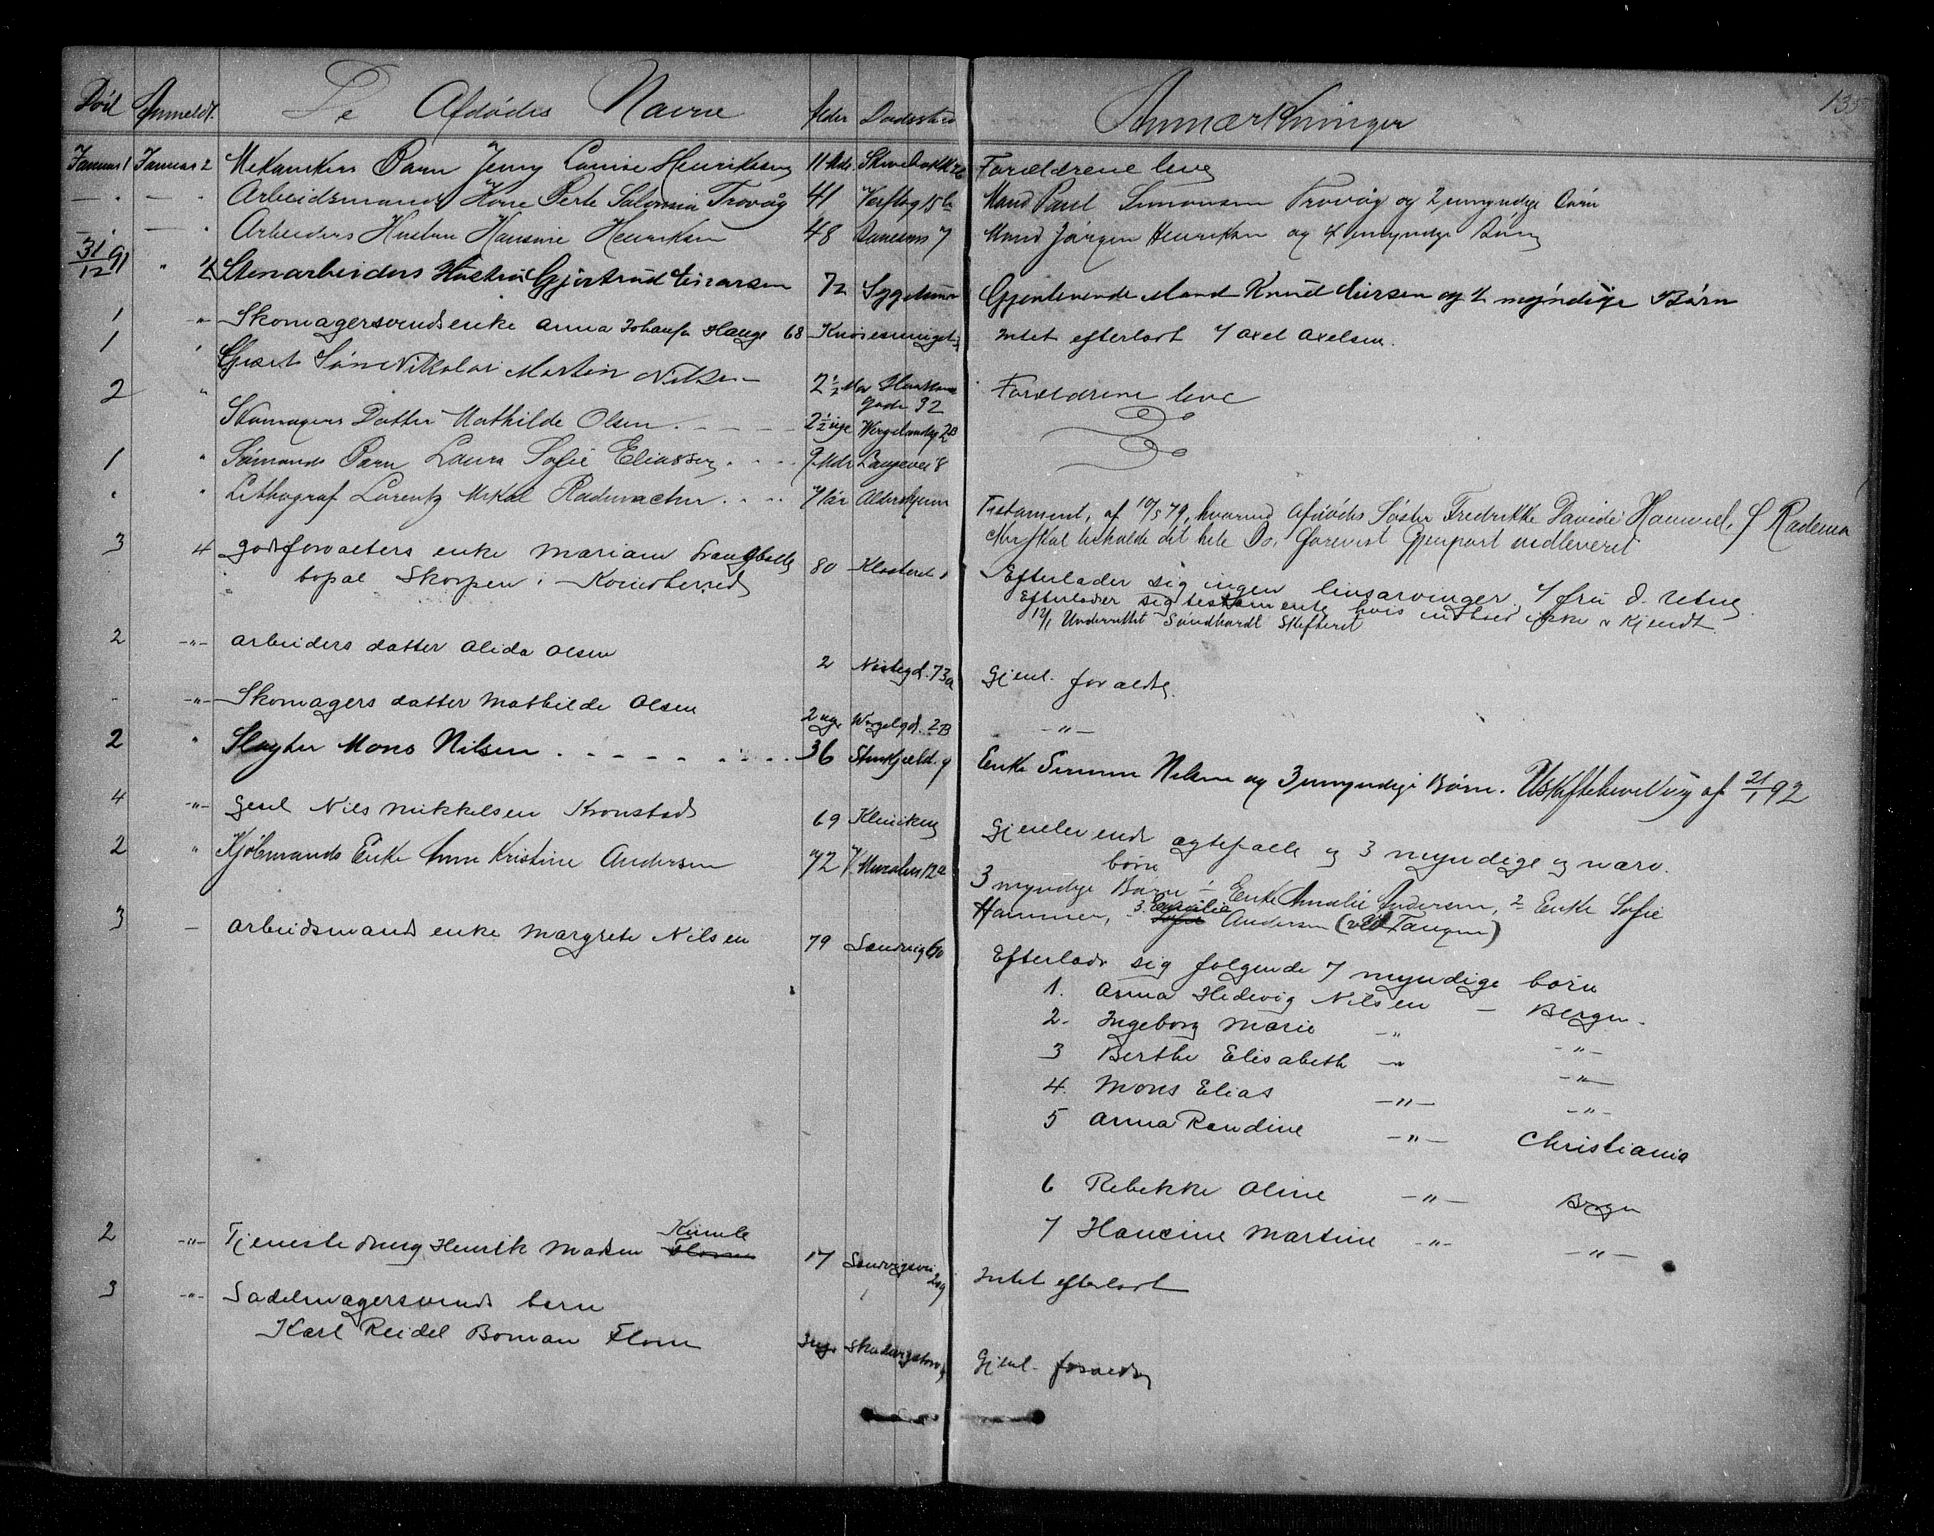 Død Anmeldt. De Afdødes Navne Alder Dødssted Anmærkninger 135
Januar 1 Januar 2 Mekanikers Barn Jenny Louise Henriksen 11 Mdr. Forældrene leve
— " — " Arbeidsmands Kone Berte Salomia Trovåg 41 Verftsg 15 b Mand Paul Simonsen Trovåg og 2 umyndige Børn
— " — " Arbeiders Hustru Hansine Henriksen 48 7 Mand Jørgen Henriksen og 4 umyndige Børn
31/12 91 " 2 Stenarbeiders Hustru Gjertrud Einarsen 72 Sygehuset Gjenlevende Mand Knud Einarsen og 2 myndige Børn
1 " Skomagersvends enke Anna Johansen Hauge 68 Intet efterladt v/ Axel Axelsen.
1 " Søn Nikolai Martin Nilsen 2 1/2 Mdr
gade 32 Forældrene leve
2 " Skomagers Datter Mathilde Olsen. 2 1/2 uge Wergelandsg 2B
1 " Sømands Barn Laura Sofie Eliassen. 9 Mdr Langevei 8
" " Lithograf Lorentz Mikal Rademacher 71 år Aldershjem Testament, af 10/5 79, hvorved Afdødes Søster Fredrikke Davida Hammel, f Radema
cher skal beholde det hele Bo, forevist Gjenpart indleveret
3 4 Godsforvalters enke Mariane Langballe 80 Klosteret 1 Efterlader sig ingen livsarvinger, v/ fru D. Utne
" bopæl Skorpen i Kvindherred Efterlader sig testamente hvis indhold ikke er kjendt
12/1 Underrettet Sundhordl. Skifteret
2 -"- Arbeiders datter Alida Olsen 2 Nøstegd. 73a Gjenl. forældre.
- -"- Skomagers datter Mathilde Olsen 2 uger Wergelgd. 2B -"-
2 " Slagter Mons Nilsen 36 Stenkjeld. 9 Enke Nilsen og 3 umyndige Børn. Uskiftebevilling af 21/1 92
4 -"- Gesel Nils Mikkelsen Kronstad 69 Kliniken Gjenlevende ægtefælle og 3 myndige og nærv.
børn
2 " Kjøbmands Enke Anne Kristine Andersen 72 12a 3 myndige Børn 1 Enke Amalie Andersen, 2 Enke Sofie
Hammer, - 3 Emilie Andersen (ved Tangen)
3 — Arbeidsmands enke Margrete Nilsen 79 Sandvig 60 Efterlader sig følgende 7 myndige børn
1. Anna Hedevig Nilsen — Bergen.
2. Ingeborg Marie -"- -"-
3 Berthe Elisabeth -"- -"-
4. Mons Elias -"- -"-
5 Anna Randine -"- Christiania
6 Rebekke Oline -"- Bergen
7 Hansine Martine -"- -"-
2 -"- Tjenestedreng Henrik Madsen Kumle 17 Sandvigsvei
Intet efterladt
3 -"- Sadelmagersvends barn
Karl Reidel Boman Flom Gjenl. forældre